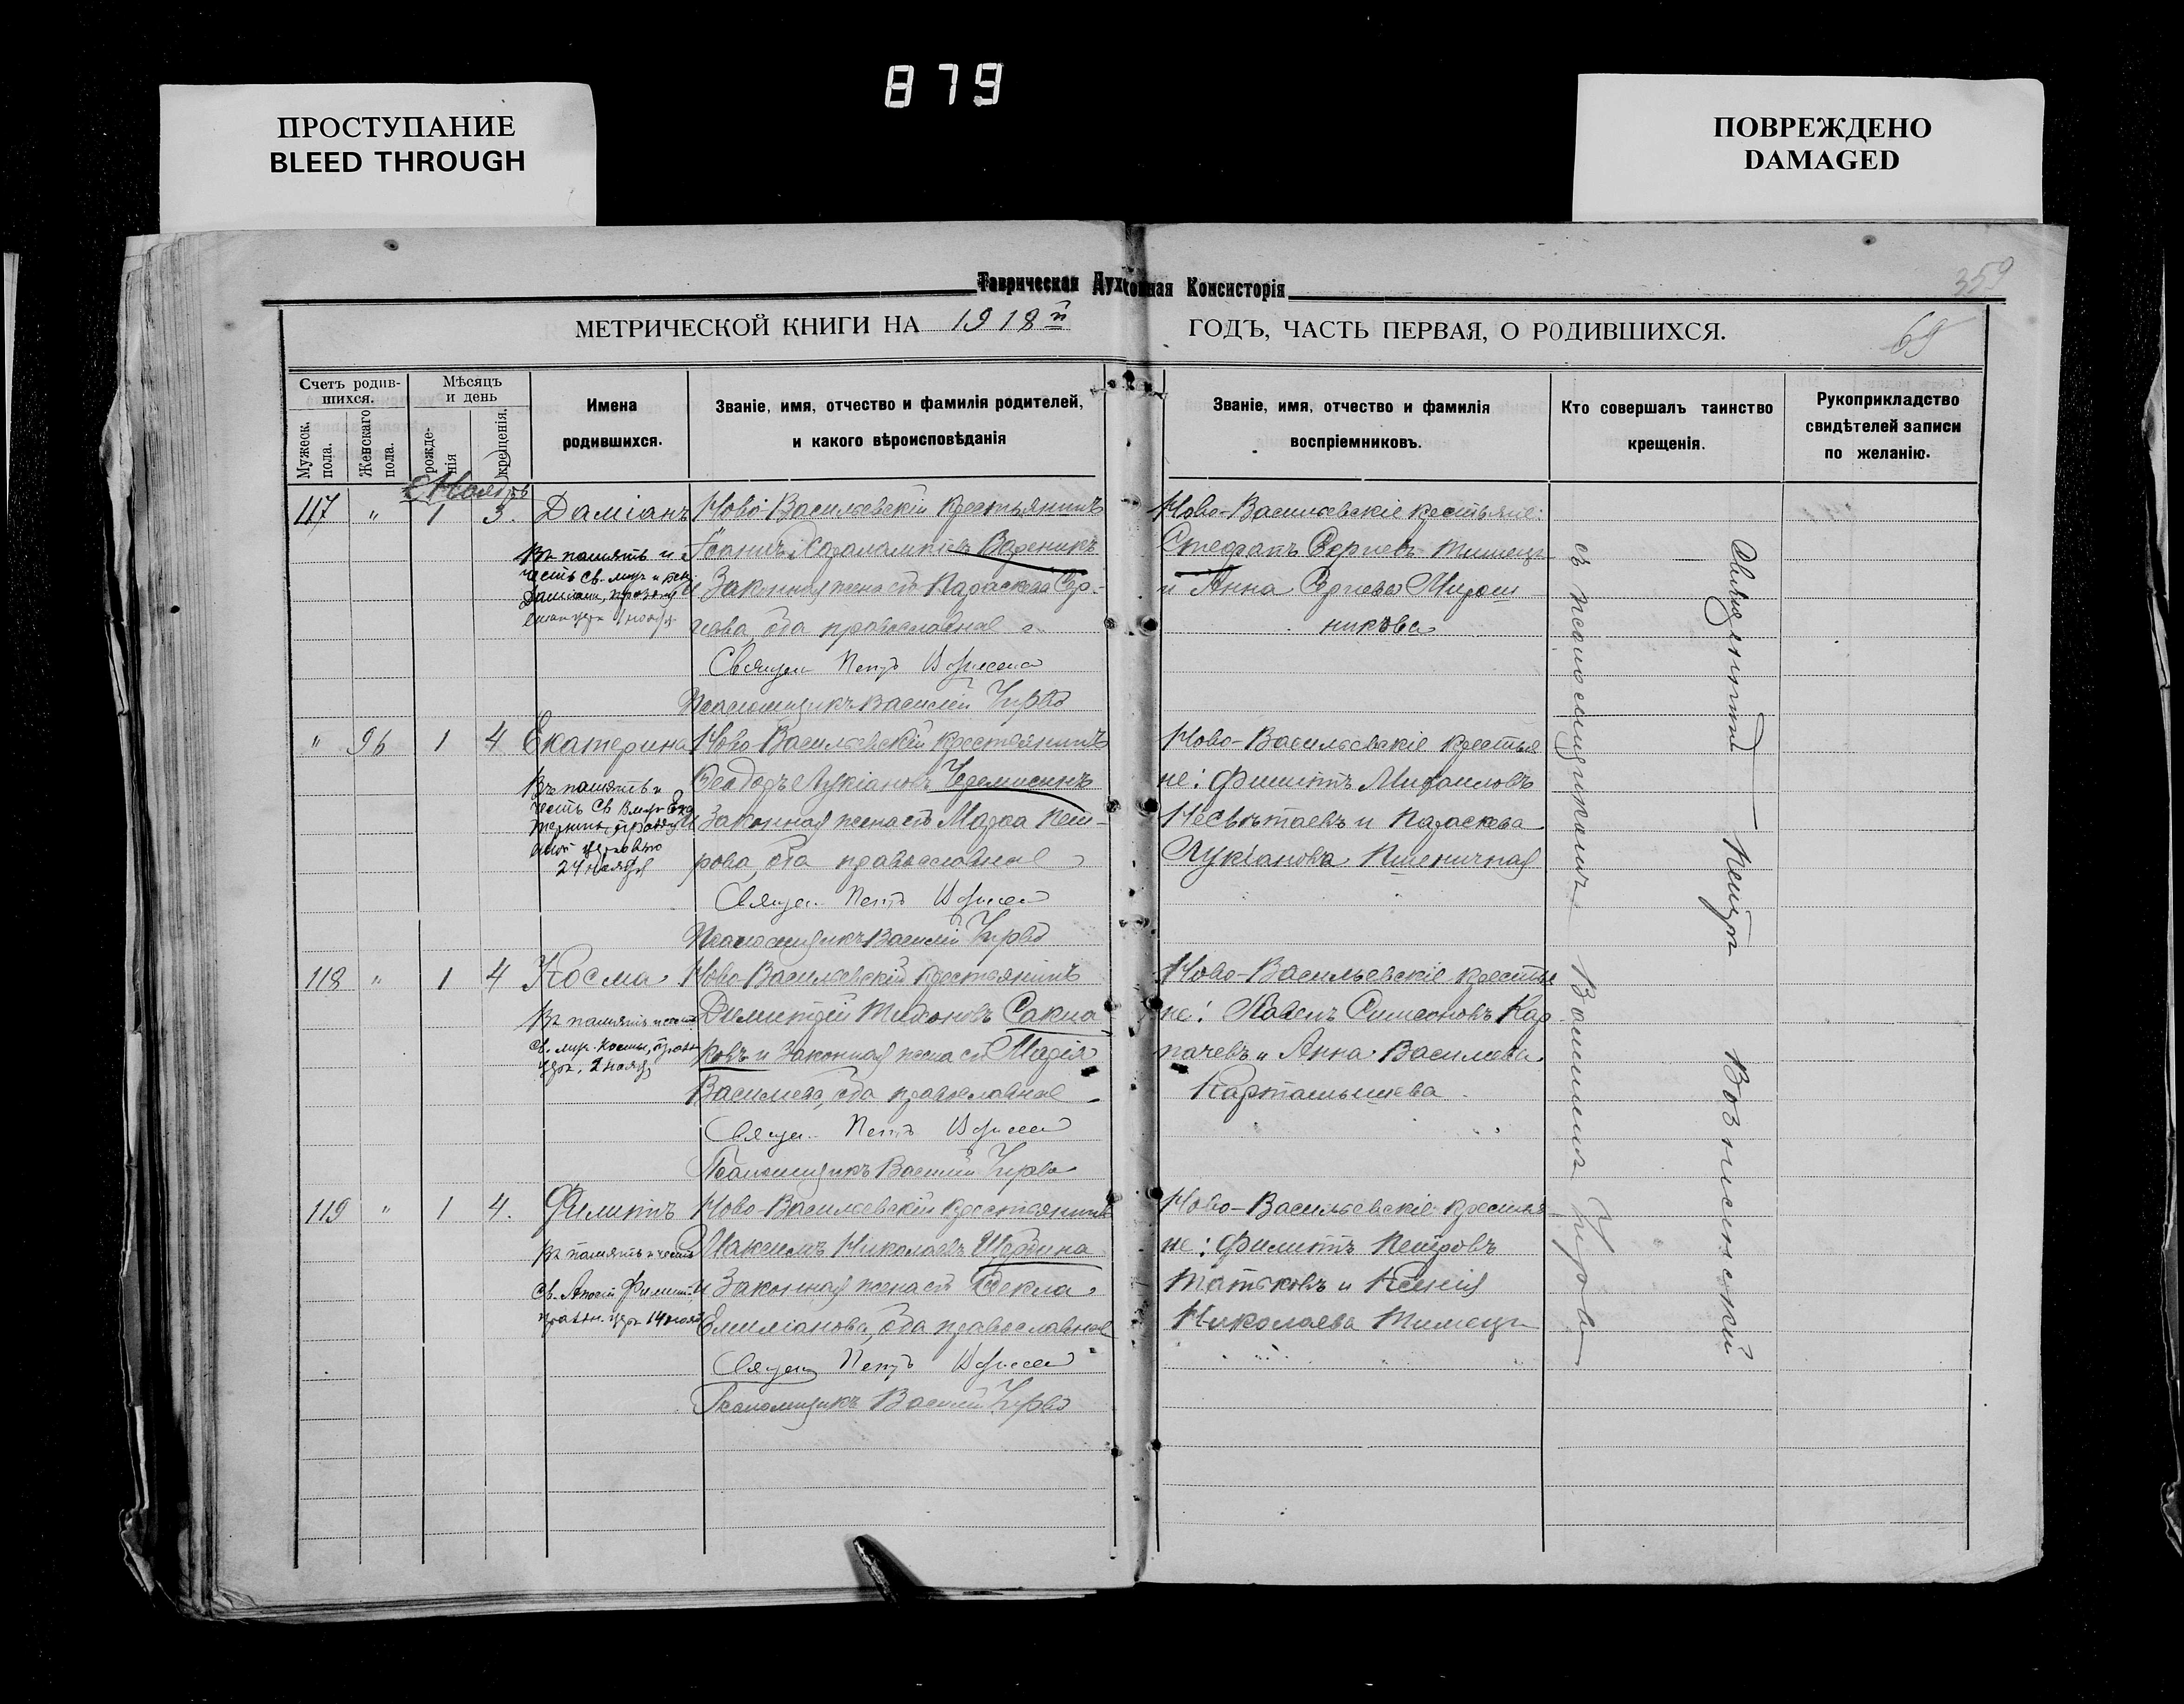 879
ПРОСТУПАНИЕ
BLEED THROUGH
ПОВРЕЖДЕНО
DAMAGED
Таврическая Духовная Консисторія
359
МЕТРИЧЕСКОЙ КНИГИ НА 1918й ГОДЪ, ЧАСТЬ ПЕРВАЯ, О РОДИВШИХСЯ.
69
Счетъ родив-
шихся.
Мужеск. пола.
Женскаго пола.
Мѣсяцъ
и день
рожде-
нія
крещенія.
Имена
родившихся.
Званіе, имя, отчество и фамилія родителей,
и какого вѣроисповѣданія
Званіе, имя, отчество и фамилія
воспріемниковъ.
Кто совершалъ таинство
крещенія.
Рукоприкладство
свидѣтелей записи
по желанію.
Ноябрь
117 " 1 3. Даміанъ
Въ память и
честь св.
Ново-Васильевскій крестьянинъ
Іоаннъ Харалампіевъ Вареникъ
и Законная жена его Параскева Сер-
гіева, оба православные
Священ. Петръ
Псаломщикъ Василій Чирва
Ново-Васильевскіе крестьяне:
Стефанъ Сергіевъ
и Анна Сергіева Мирош
никова
" 96 1 4 Екатерина
Въ память и
честь св. Влмр. Ека
терины, праздну
24 ноября
Ново-Васильевскій крестьянинъ
Ѳеодоръ Лукіановъ Черемисинъ
и Законная жена его Марѳа Пет-
рова, оба православные
Священ. Петръ
Псаломщикъ Василій Чирва
Ново-Васильевскіе крестья
не: Филиппъ Михаиловъ
Несвѣтаевъ и Параскева
Лукіанова Пшеничная
118 " 1 4 Косма
Въ память и честь
св. мчр. Космы, праздн.
церк. 1 ноября
Ново-Васильевскій крестьянинъ
Димитрій Тихоновъ Сакма
ковъ и Законная жена его Марія
Василіева, оба православные
Священ. Петръ
Псаломщикъ Василій Чирва
Ново-Васильевскіе крестья
не: Павелъ Симеоновъ Кар
пачевъ и Анна Василіева
Карташышева
119 " 1 4. Филиппъ
Въ память и честь
св. Апост. Филиппа
праздн. церк. 14 ноября
Ново-Васильевскій крестьянинъ
Максимъ Николаевъ Щербина
и Законная жена его Ѳекла
Емиліанова, оба православные
Священ. Петръ
Псаломщикъ Василій Чирва
Ново-Васильевскіе крестья
не: Филиппъ Петровъ
Татьковъ и Ксенія
Николаева
Священникъ Петръ Вознесенскій
съ псаломщикомъ Василіемъ Чирва